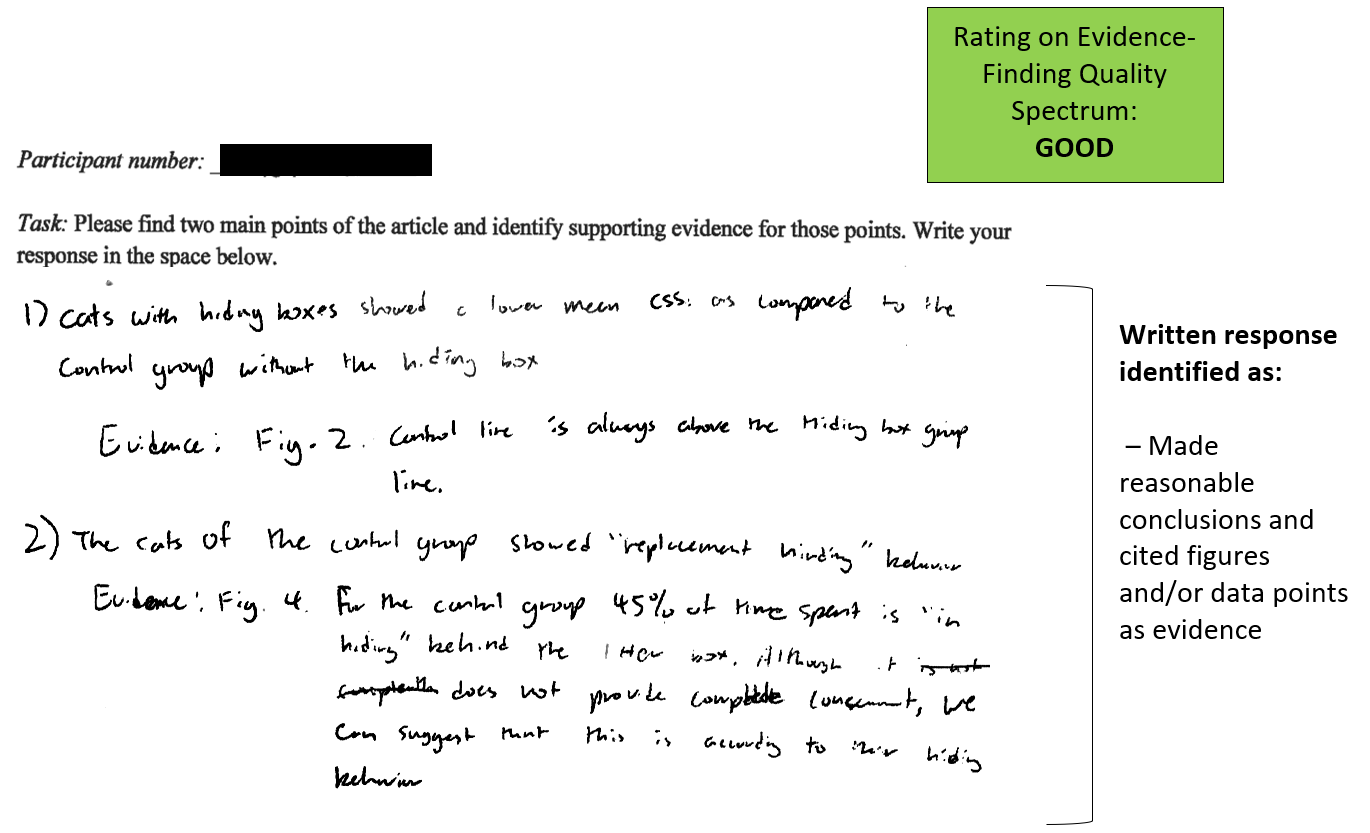 Rating on Evidence-
Finding Quality
Spectrum:
GOOD
Participant number:
Task: Please find two main points of the article and identify supporting evidence for those points. Write your
response in the space below.
1) Cats with hiding boxes showed a lower mean CSS. as compared to the
Control group without the hiding box
Evidence: Fig. 2. Control line is always above the Hiding box group
line.
2) The cats of the control group showed "replacement hinding" behavior
Evidence: Fig. 4. For the control group 45% of time spent is "in
hiding" behind the box. Although it is not
completely does not provide complete, we
can suggest that this is according to their hiding
behavior
Written response
identified as:
– Made
reasonable
conclusions and
cited figures
and/or data points
as evidence